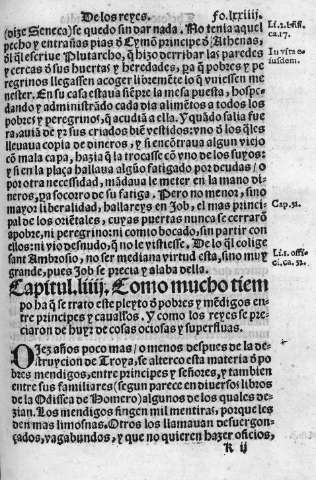 De los reyes. Fo.lxxiiij.
(dize Seneca) se quedo sin dar nada. No tenia aquel
pecho y entrañas pias ð Cymõ principe ð Athenas,
ðl q̃l escriue Plutarcho, q̃ hizo derribar las paredes
y cercas ð sus huertas y heredades, pa q̃ pobres y pe
regrinos llegassen acoger libremẽte lo q̃ vuiessen me
nester. En su casa estaua siẽpre la mesa puesta, hospe-
dando y administrãdo cada dia alimẽtos a todos los
pobres y peregrinos, q̃ acudiã a ella. Y quãdo salia fue
ra, auiã de yr sus criados biẽ vestidos: vno ð los q̃les
lleuaua copia de dineros, y si encõtraua algun viejo
cõ mala capa, hazia q̃ la trocasse cõ vno de los suyos:
y si en la plaça hallaua algũo fatigado por deudas/ o
por otra necessidad, mãdaua le meter en la mano di-
neros, pa socorro de su fatiga. Pero no menor, sino
mayor liberalidad, hallareys en Job, el mas princi-
pal de los oriẽtales, cuyas puertas nunca se cerrarõ
a pobre, ni peregrino: ni comio bocado, sin partir con
ellos: ni vio desnudo, q̃ no le vistiesse. De lo q̃l colige
sant Ambrosio, no ser mediana virtud esta, sino muy
grande, pues Job se precia y alaba della.
Li.2. ð bñfi.
ca.17.
In vita e
iusdem.
Cap.31.
Li.1. offi-
ci.ca.32.
Capitul. liiij. Como mucho tiem
po ha q̃ se trato este pleyto ð pobres y mẽdigos en-
tre principes y cauallos. Y como los reyes se pre-
ciaron de huyr de cosas ociosas y superfluas.
DJez años poco mas/ o menos despues de la de-
struycion de Troya, se alterco esta materia ð po
bres mendigos, entre principes y señores, y tambien
entre sus familiares (segun parece en diuersos libros
de la Odissea de Homero) algunos de los quales de-
zian. Los mendigos fingen mil mentiras, porque les
den mas limosnas. Otros los llamauan desuergon-
çados, vagabundos, y que no quieren hazer oficios,
K ij